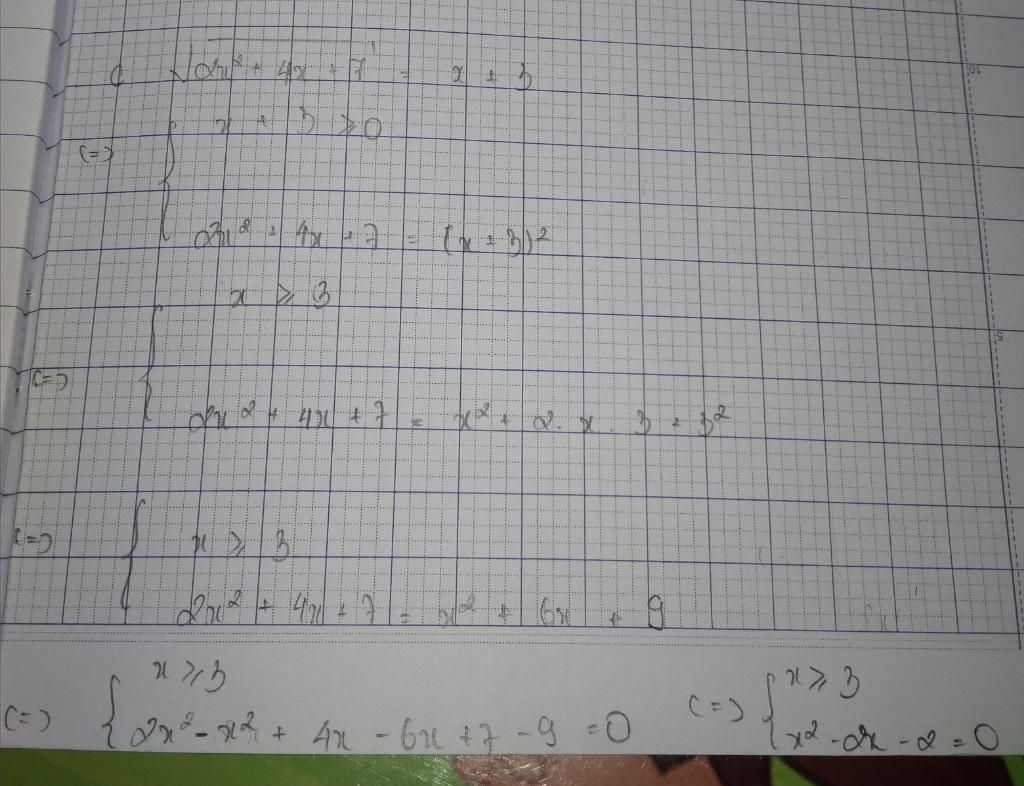 √2x² + 4x + 7 = x + 3
x + 3 ≥ 0
<=>
2x² + 4x + 7 = (x + 3)²
x ≥ 3
<=>
2x² + 4x + 7 = x² + 2. x. 3 + 3²
<=> x ≥ 3
2x² + 4x + 7 = x² + 6x + 9
x ≥ 3
<=> 2x² - x² + 4x - 6x + 7 - 9 = 0
<=> x ≥ 3
x² - 2x - 2 = 0